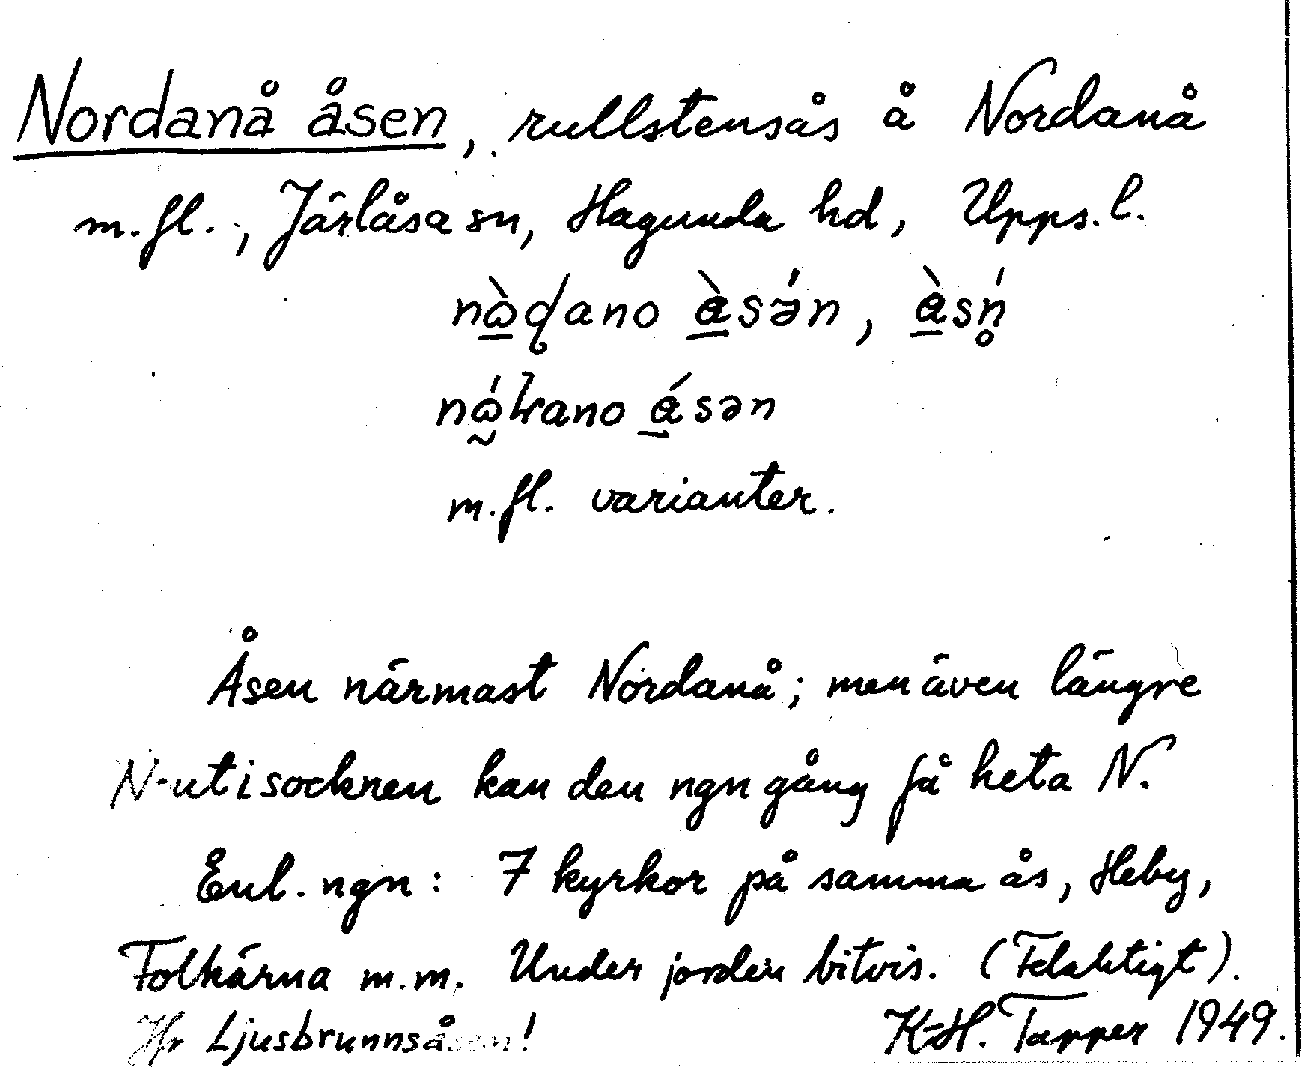 Nordanå åsen, rullstensås å Nordanå
m.fl., Järlåsa sn, Hagunda hd, Upps. l.
m.fl. varianter.
Åsen närmast Nordanå; men även längre
N-ut i socknen kan den ngn gång få heta N.
Enl. ngn: 7 kyrkor på samma ås, Heby,
Folkärna m.m. Under jorden bitvis. (Felaktigt).
Jfr Ljusbrunnsåsen!
K-H. Tapper 1949.